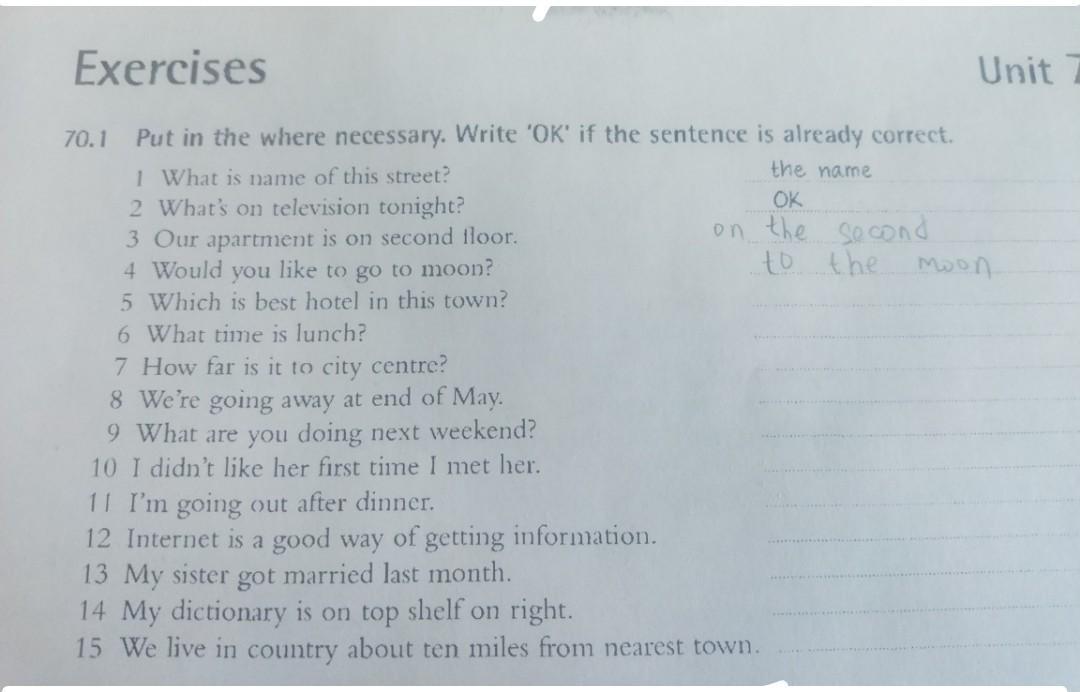 Exercises
Unit 7
70.1 Put in the where necessary. Write 'OK' if the sentence is already correct.
1 What is name of this street? the name
2 What's on television tonight? OK
3 Our apartment is on second floor. on the second
4 Would you like to go to moon? to the moon
5 Which is best hotel in this town?
6 What time is lunch?
7 How far is it to city centre?
8 We're going away at end of May.
9 What are you doing next weekend?
10 I didn't like her first time I met her.
11 I'm going out after dinner.
12 Internet is a good way of getting information.
13 My sister got married last month.
14 My dictionary is on top shelf on right.
15 We live in country about ten miles from nearest town.